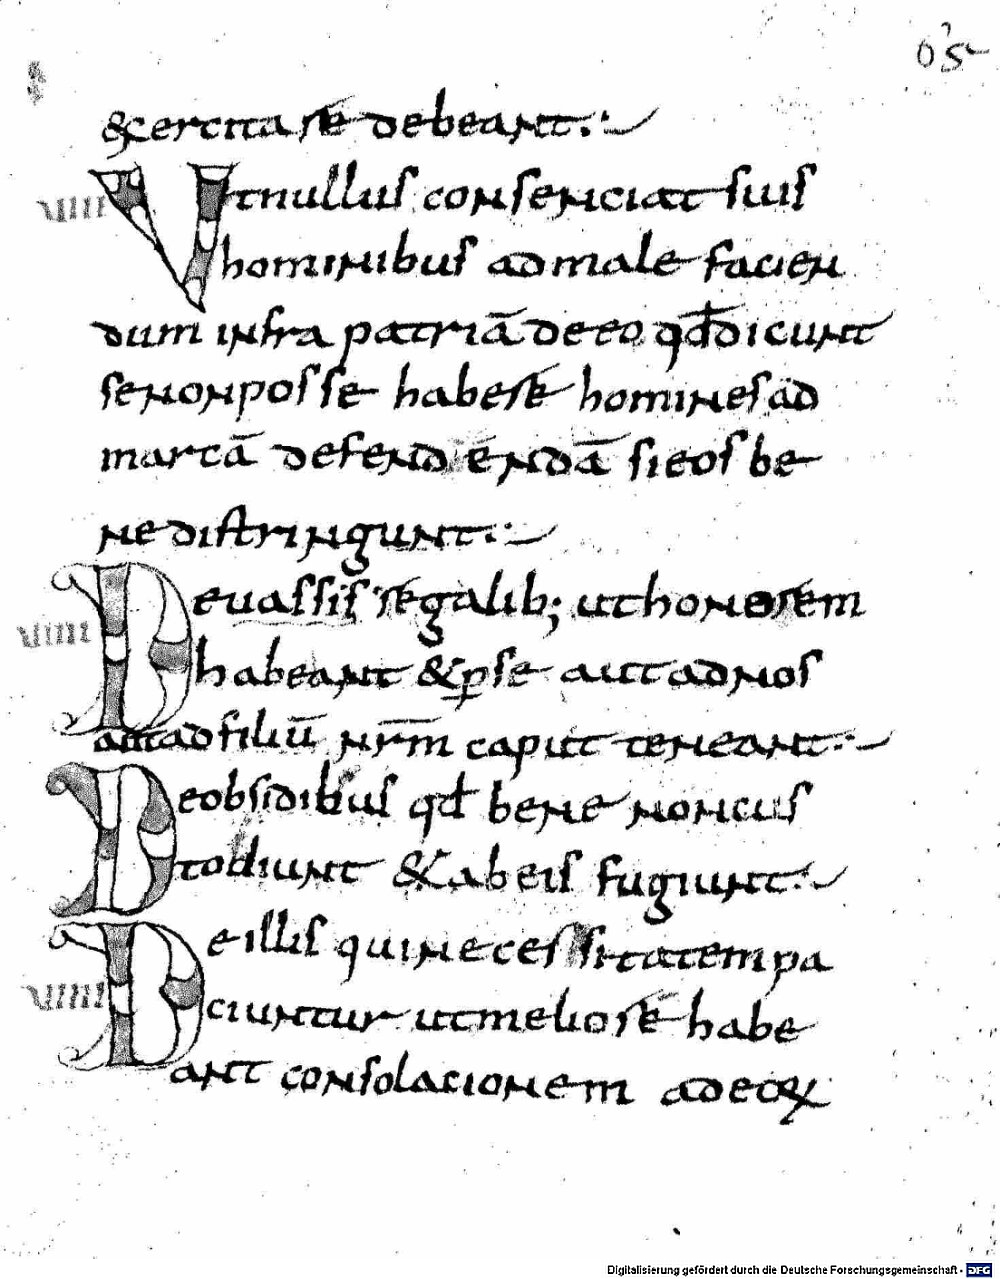 &cercitare debeant.
viii Ut nullus consenciat suis
hominibus ad male facien
dum infra patriā de eo qđ dicunt
se non posse habere homines ad
marcā defendendā si eos be
ne distringunt.
viiii De vassis regalib; ut honorem
habeant & p̱ se aut ad nos
aut ad filiū nr̄m caput teneant.
De obsidibus qđ bene non cus
todiunt & ab eis fugiunt.
viiii De illis qui necessitatem pa
ciuntur ut meliore habe
ant consolacionem ad eoꝝ
Digitalisierung gefördert durch die Deutsche Forschungsgemeinschaft - DFG